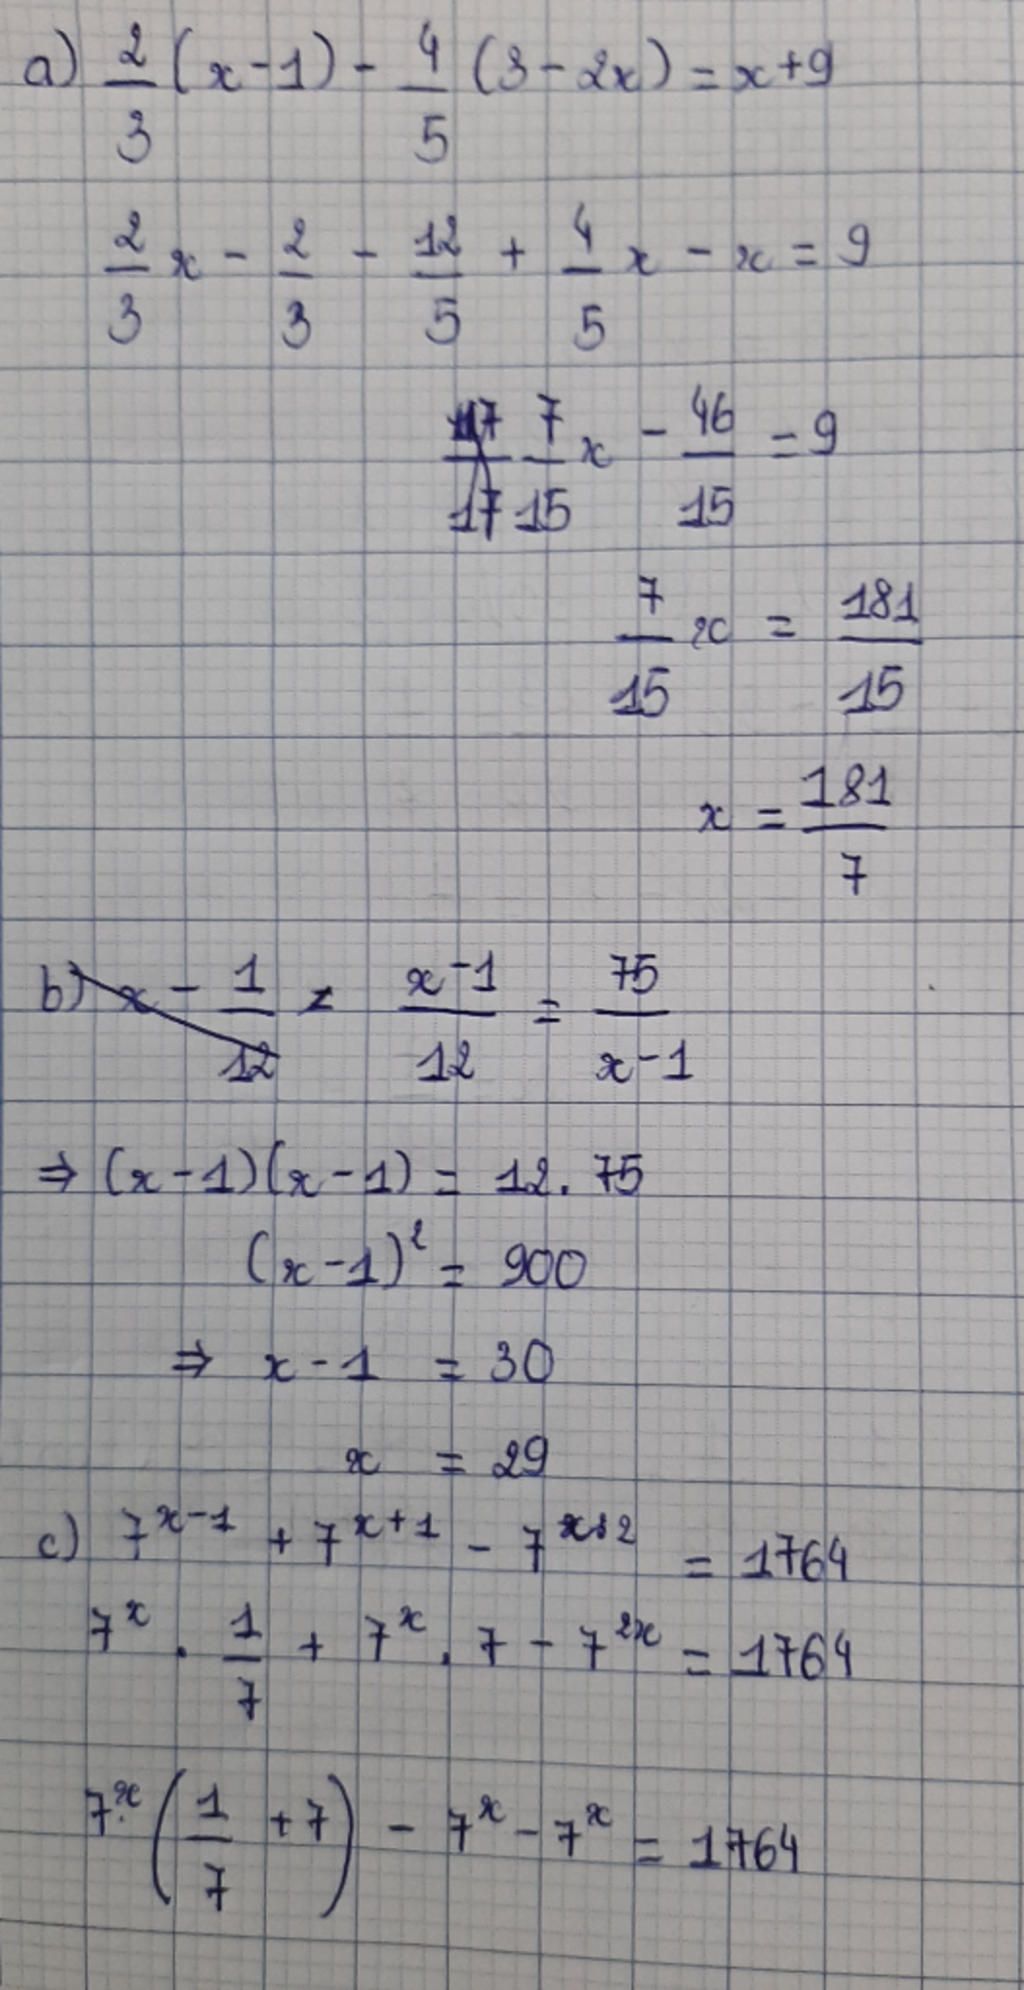 a) 2/3 (x-1) - 4/5 (3-2x) = x+9
2/3 x - 2/3 - 12/5 + 4/5 x - x = 9
7/15 x - 46/15 = 9
7/15 x = 181/15
x = 181/7
b) x - 1/12 = (x-1)/12 = 75/(x-1)
⇒ (x-1)(x-1) = 12.75
(x-1)² = 900
⇒ x-1 = 30
x = 29
c) 7^(x-1) + 7^(x+1) - 7^(x:2) = 1764
7^x . 1/7 + 7^x . 7 - 7^(2x) = 1764
7^x (1/7 + 7) - 7^x - 7^x = 1764